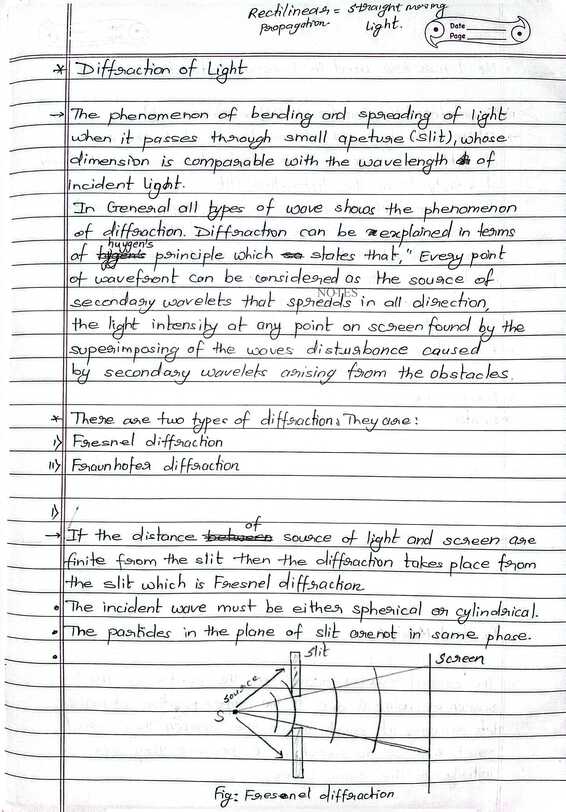 Rectilinear = straight moving
propagation light.
Date
Page
* Diffraction of Light
→ The phenomenon of bending and spreading of light
when it passes through small apeture (slit), whose
dimension is comparable with the wavelength of
incident light.
In General all types of wave shows the phenomenon
of diffraction. Diffraction can be explained in terms
of huygen's principle which states that, " Every point
of wavefront can be considered as the source of
NOTES
secondary wavelets that spreads in all direction,
the light intensity at any point on screen found by the
superimposing of the waves disturbance caused
by secondary wavelets arising from the obstacles.
* There are two types of diffraction. They are:
i) Fresnel diffraction
ii) Fraunhofer diffraction
i)
→ If the distance of source of light and screen are
finite from the slit then the diffraction takes place from
the slit which is Fresnel diffraction
• The incident wave must be either spherical or cylindrical.
• The particles in the plane of slit are not in same phase.
•
slit
screen
source
S
Fig: Fresenel diffraction